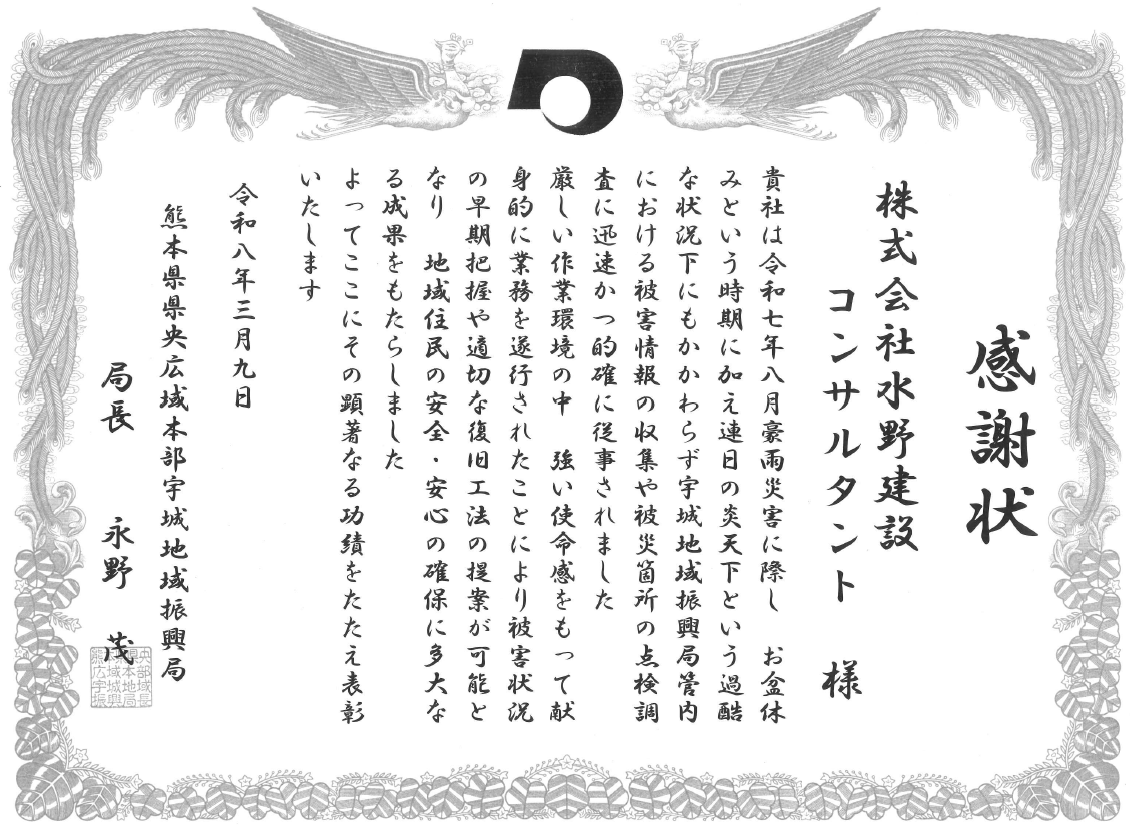 感謝状
株式会社水野建設
コンサルタント 様
貴社は令和七年八月豪雨災害に際し お盆休
みという時期に加え連日の炎天下という過酷
な状況下にもかかわらず宇城地域振興局管内
における被害情報の収集や被災箇所の点検調
査に迅速かつ的確に従事されました
厳しい作業環境の中 強い使命感をもって献
身的に業務を遂行されたことにより被害状況
の早期把握や適切な復旧工法の提案が可能と
なり 地域住民の安全・安心の確保に多大な
る成果をもたらしました
よってここにその顕著なる功績をたたえ表彰
いたします
令和八年三月九日
熊本県県央広域本部宇城地域振興局
局長 永野 茂